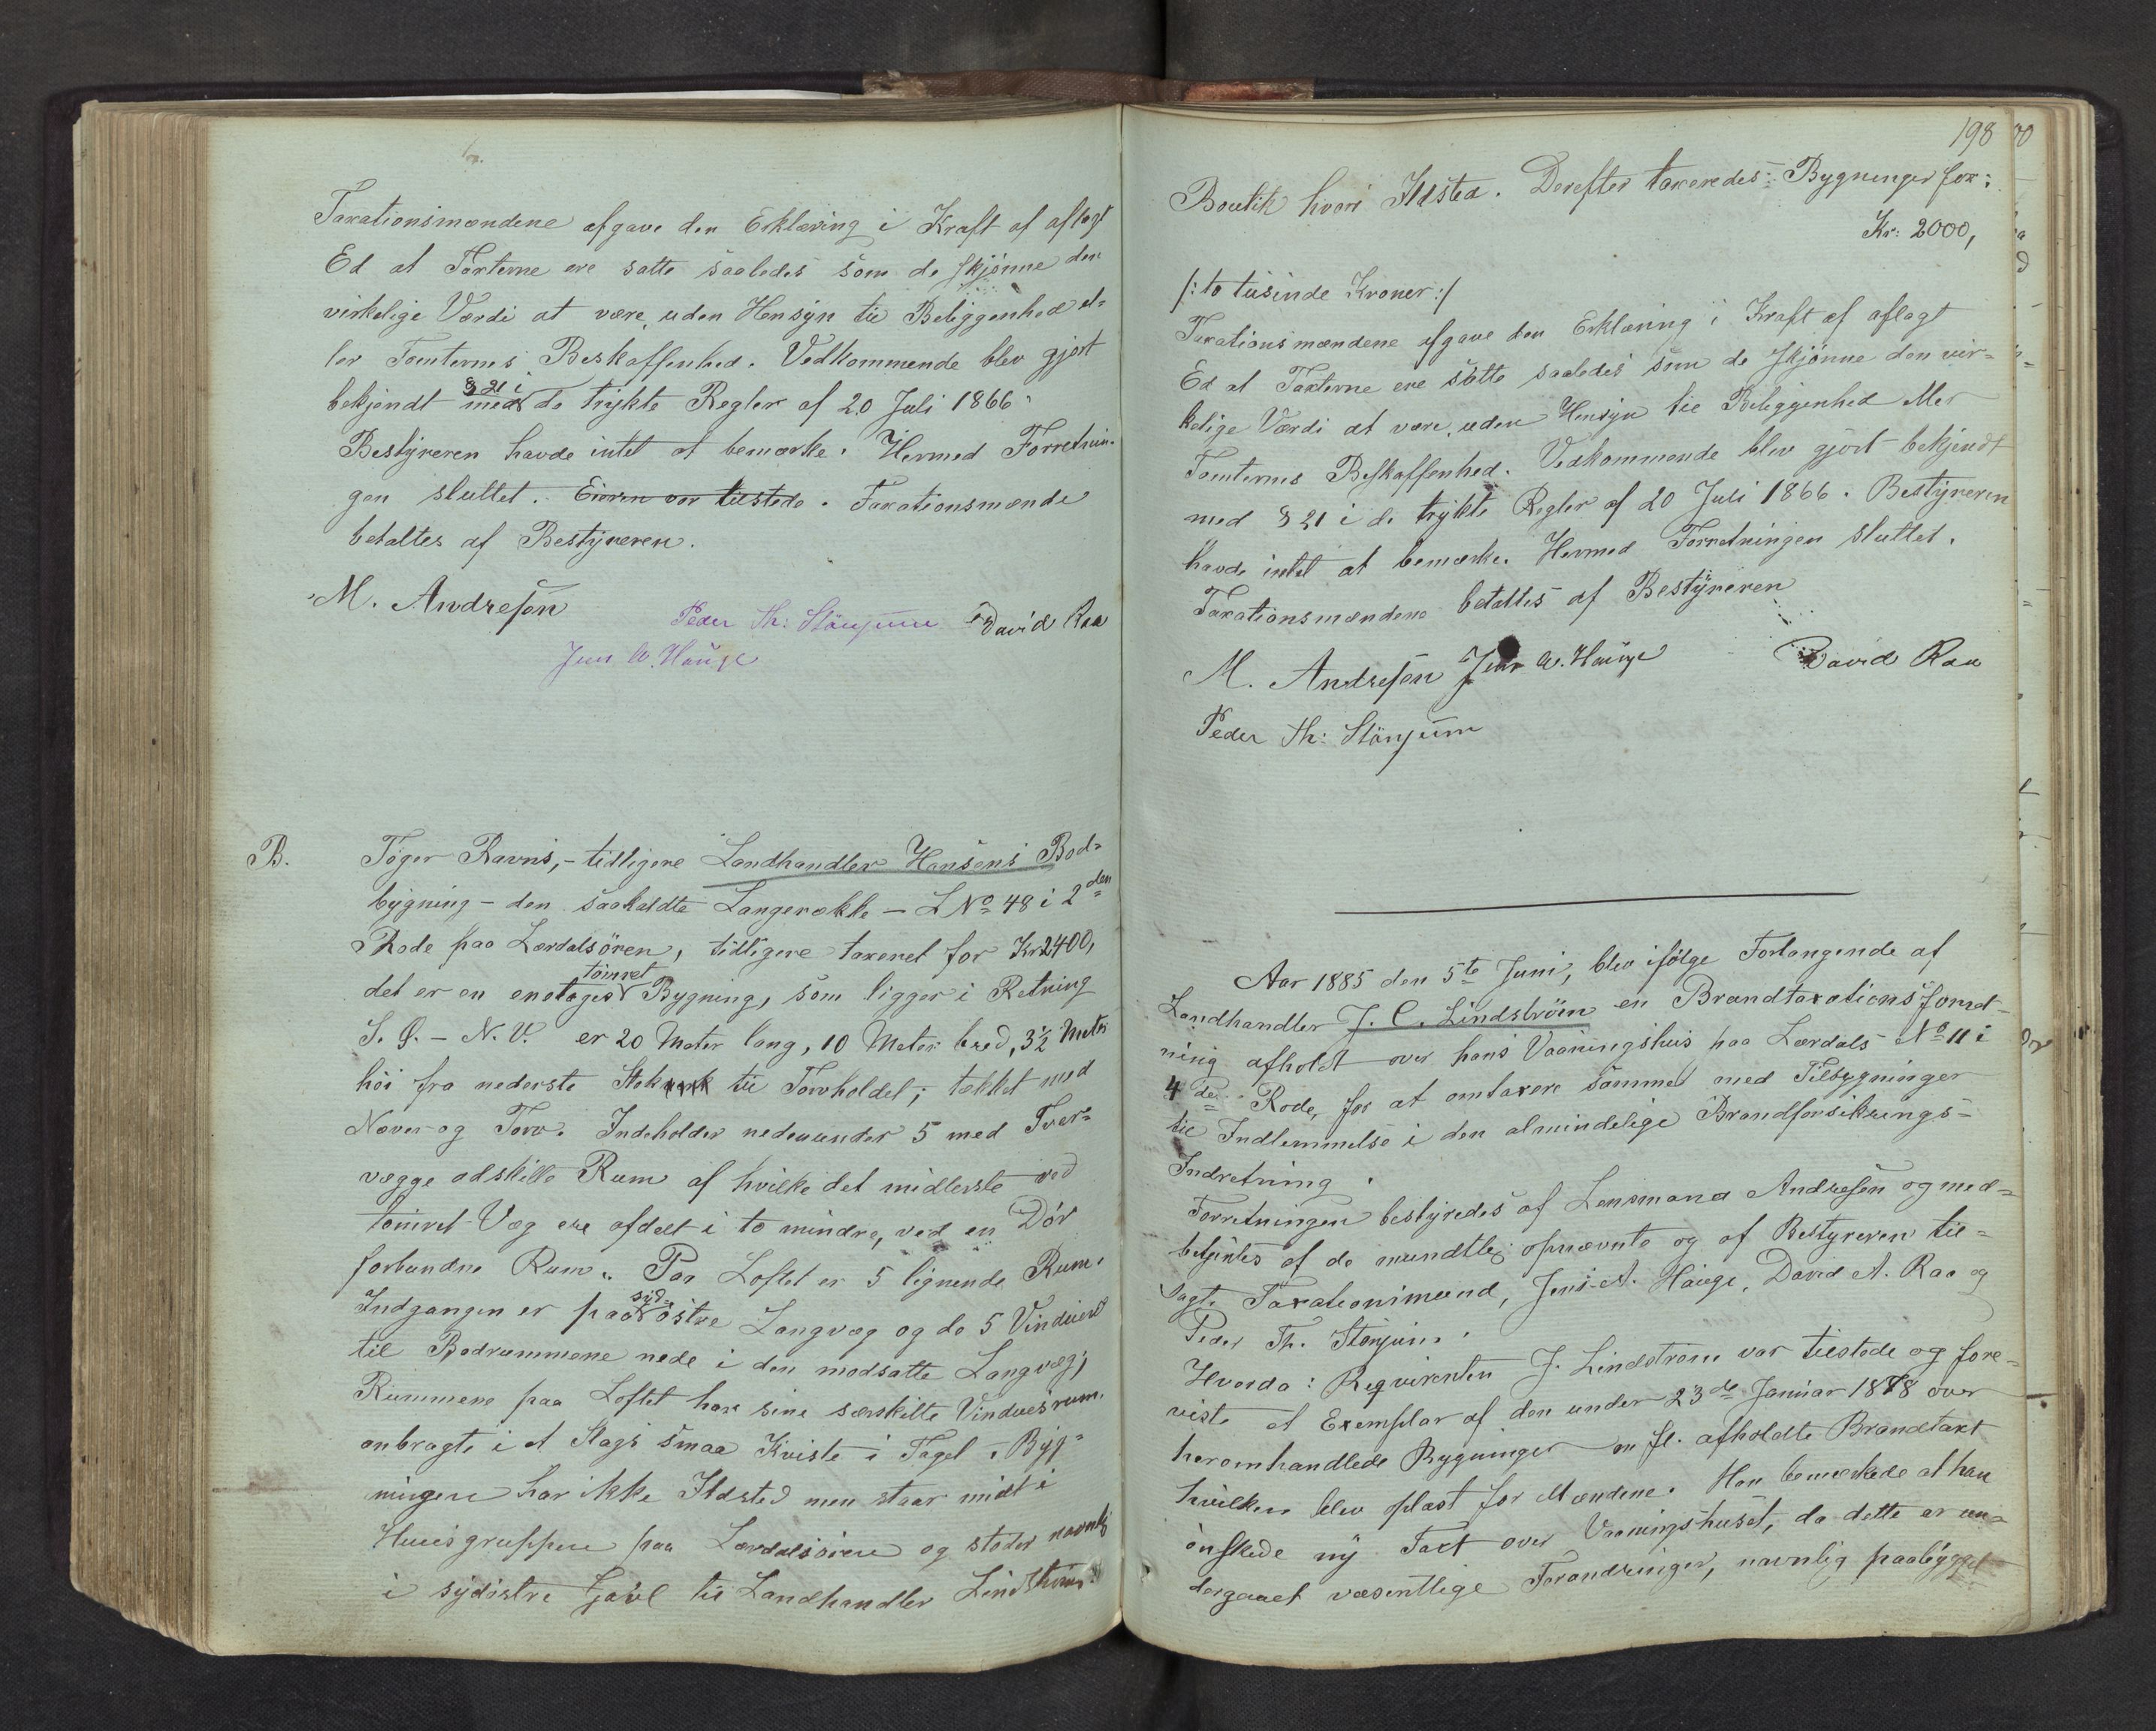 Taxationsmændene afgave den Erklæring i Kraft af aflagt
Ed at Taxterne ere satte saaledes som de skjønne den
virkelige Værdi at være, uden Hensyn til Beliggenhed el-
ler Tomternes Beskaffenhed. Vedkommende blev gjort
bekjendt med § 21 i de trykte Regler af 20 Juli 1866.
Bestyreren havde intet at bemærke. Hermed Forretnin-
gen sluttet. Eieren var tilstede. Taxationsmænde
betaltes af Bestyreren.
M. Andresen
Peder Th: Stänjum David Raa
Jens A. Hauge
B. Tøger Ravns, - tidligere Landhandler Hansens Bod-
bygning - den saakaldte Langerække - L No 48 i 2den
Rode paa Lærdalsören, tidligere taxeret for Kr 2400,
det er en enetages tömret Bygning, som ligger i Retning
S. Ö. - N. V. er 20 Meter lang, 10 Meter bred, 3½ Meter
höi fra nederste Stokværk til Torvholdet; tækket med
Næver og Torv. Indeholder nedenunder 5 med Tver-
vægge adskilte Rum af hvilke det midterste ved
tömret Væg ere afdelt i to mindre, ved en Dör
forbundne Rum. Paa Loftet er 5 lignende Rum.
Indgangen er paa syd-östre Langvæg og de 5 Vinduer
til Bodrummene nede i den modsatte Langvæg;
Rummene paa Loftet har sine særskilte Vinduesrum,
anbragte i et Slags smaa Kviste i Taget. Byg-
ningen har ikke Ildsted men staar midt i
Huusgruppen paa Lærdalsören og stöder navnlig
i sydöstre Gavl til Landhandler Lindströms
198
Boutik hvori Ildsted. Derefter taxeredes Bygninger for:
Kr: 2000,
/: to tusinde Kroner :/
Taxationsmændene afgave den Erklæring i Kraft af aflagt
Ed at Taxterne ere satte saaledes som de skjönne den vir-
kelige Værdi at være, uden Hensyn til Beliggenhed eller
Tomternes Beskaffenhed. Vedkommende blev gjort bekjendt
med § 21 i de trykte Regler af 20 Juli 1866. Bestyreren
havde intet at bemærke. Hermed Forretningen sluttet.
Taxationsmændene betaltes af Bestyreren
M. Andresen Jens A. Hauge David Raa
Peder Th: Stänjum
Aar 1885 den 5te Juni, blev ifölge Forlangende af
Landhandler J. C. Lindström en Brandtaxationsforret-
ning afholdt over hans Vaaningshus paa Lærdals No 11 i
4de Rode, for at omtaxere samme med Tilbygninger
til Indlemmelse i den almindelige Brandforsikrings-
Indretning.
Forretningen bestyredes af Lensmand Andresen og med-
betjentes af de mundtlig opnævnte og af Bestyreren til-
sagte Taxationsmænd, Jens A. Hauge, David A. Raa og
Peder Th. Stänjum.
Hvorda: Reqvirenten J. Lindström var tilstede og fore-
viste et Exemplar af den under 23de Januar 1878 over
heromhandlede Bygninger m. fl. afholdte Brandtaxt
hvilken blev oplæst for Mændene. Han bemærkede at han
önskede ny Taxt over Vaaningshuset, da dette er un-
dergaaet væsentlige Forandringer, navnlig paabygget